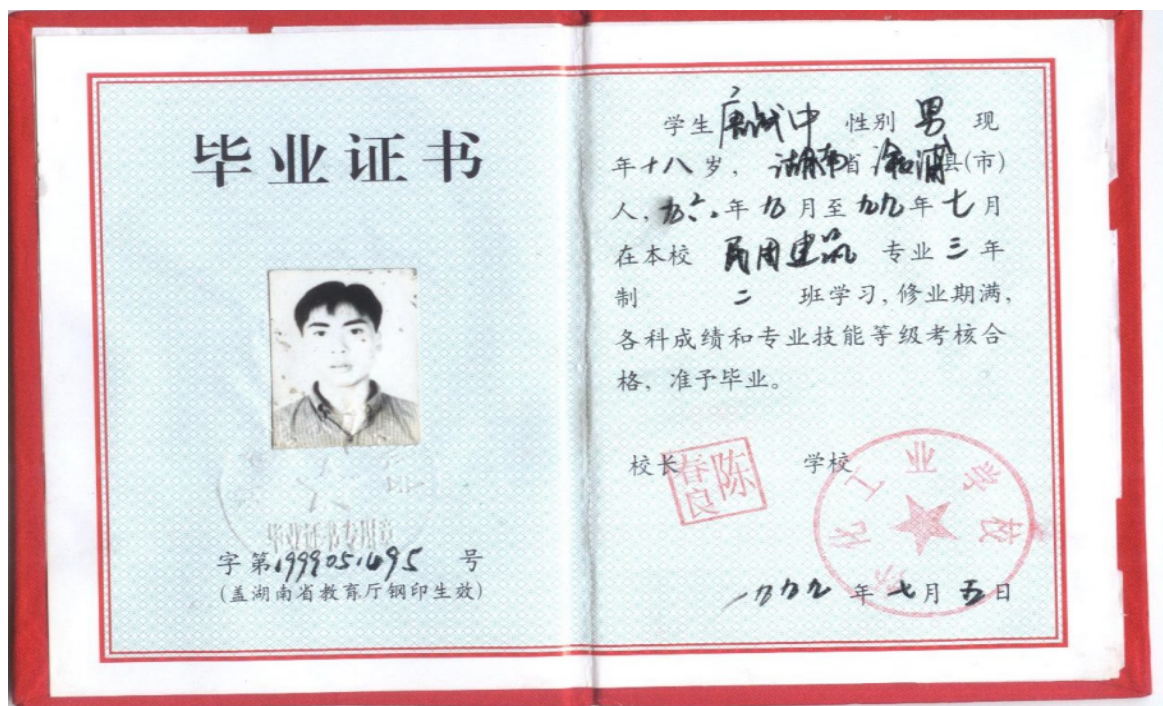 毕业证书
字第199905.1495 号
(盖湖南省教育厅钢印生效)
学生 性别 男 现
年十八岁, 湖南省 溆浦县(市)
人,九六年九月至九九年七月
在本校 民用建筑 专业三年
制 二 班学习,修业期满,
各科成绩和专业技能等级考核合
格,准予毕业。
校长 陈春良 学校
怀化工业学校
一九九九年七月五日